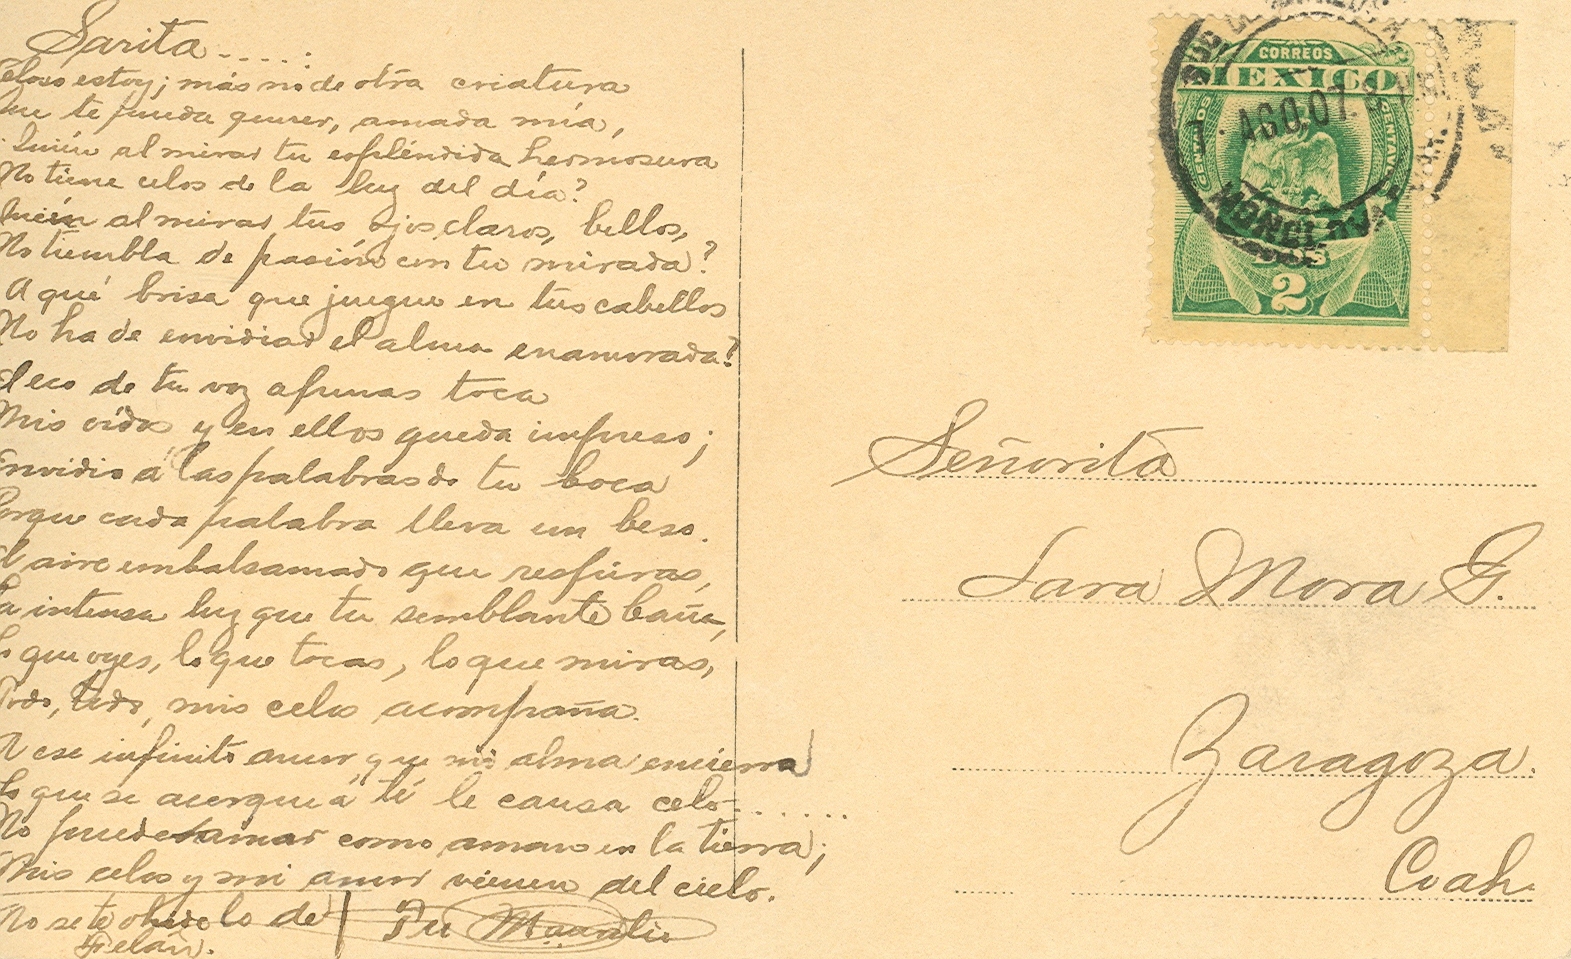 Sarita.....:
Celoso estoy; más no de otra criatura
Que te pueda querer, amada mía,
Quién al mirar tu espléndida hermosura
No tiene celos de la luz del día?
Quién al mirar tus ojos claros, bellos,
No tiembla de pasión con tu mirada?
A qué brisa que juegue en tus cabellos
No ha de envidiar el alma enamorada?
El eco de tu voz apenas toca
Mis oídos y en ellos queda impreso;
Envidio á las palabras de tu boca
Porque cada palabra lleva un beso.
El aire embalsamado que respiras,
La intensa luz que tu semblante baña,
Lo que oyes, lo que tocas, lo que miras,
Todo, todo, mis celos acompaña.
A ese infinito amor, que mi alma encierra
Lo que se acerque á tí le causa celo.......
No puedes amar como amamos en la tierra;
Mis celos y mi amor vienen del cielo.
No se te olvide lo de
Tu
CORREOS
MEXICO
CENTAVOS
1. AGO. 07.
MONCLOVA
2
Señorita
Sara Mora G.
Zaragoza.
Coah.